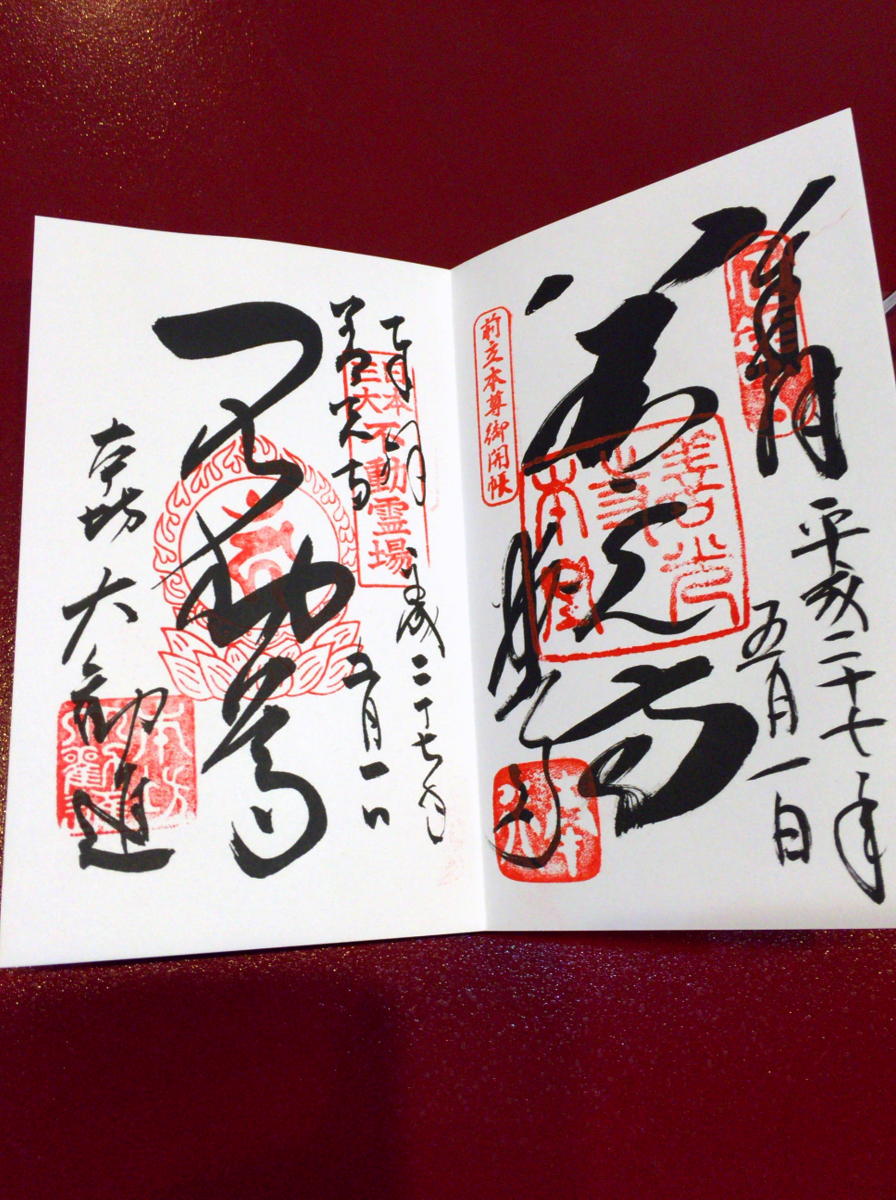 奉拝
平成二十七年
五月一日
善光寺
前立本尊御開帳
奉拝
平成二十七年
五月一日
日本三大不動霊場
善光寺
不動尊
本坊 大勧進